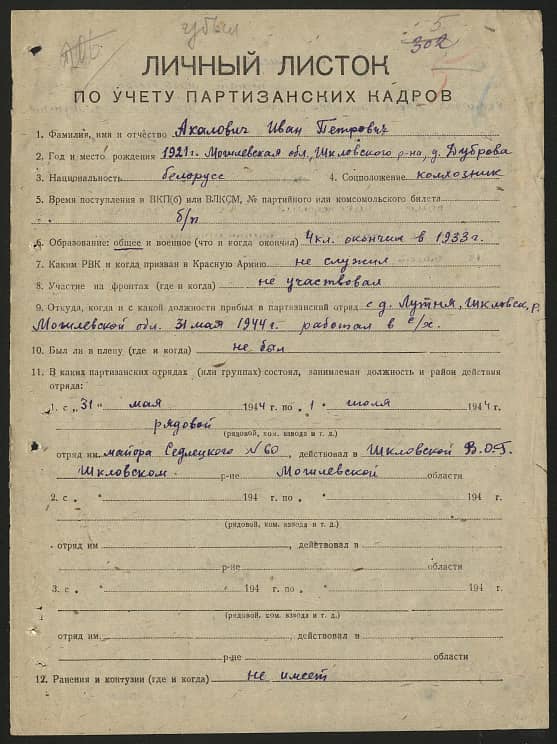 убыл
302
5
ЛИЧНЫЙ ЛИСТОК
ПО УЧЕТУ ПАРТИЗАНСКИХ КАДРОВ
1. Фамилия, имя и отчество Ахалович Иван Петрович
2. Год и место рождения 1921г. Могилевская обл, Шкловского р-на, д. Дуброва
3. Национальность белорусс 4. Соцположение колхозник
5. Время поступления в ВКП(б) или ВЛКСМ, № партийного или комсомольского билета
б/п
6. Образование: общее и военное (что и когда окончил) 4кл. окончил в 1933г.
7. Каким РВК и когда призван в Красную Армию не служил
8. Участие на фронтах (где и когда) не участвовал
9. Откуда, когда и с какой должности прибыл в партизанский отряд с д. Лутня, Шкловск. р.
Могилевской обл. 31 мая 1944г. работал в с/х.
10. Был ли в плену (где и когда) не был
11. В каких партизанских отрядах (или группах) состоял, занимаемая должность и район действия
отряда:
1. с „31" мая 1944 г. по „1" июля 1944 г.
рядовой
(рядовой, ком. взвода и т. д.)
отряд им. майора Седлецкого №60, действовал в Шкловской В.О.Г.
Шкловском р-не Могилевской области
2. с „ " 194 г. по „ " 194 г.
(рядовой, ком. взвода и т. д.)
отряд им , действовал в
р-не области
3. с „ " 194 г. по „ " 194 г.
(рядовой, ком. взвода и т. д.)
отряд им. , действовал в
р-не области
12. Ранения и контузии (где и когда) не имеет